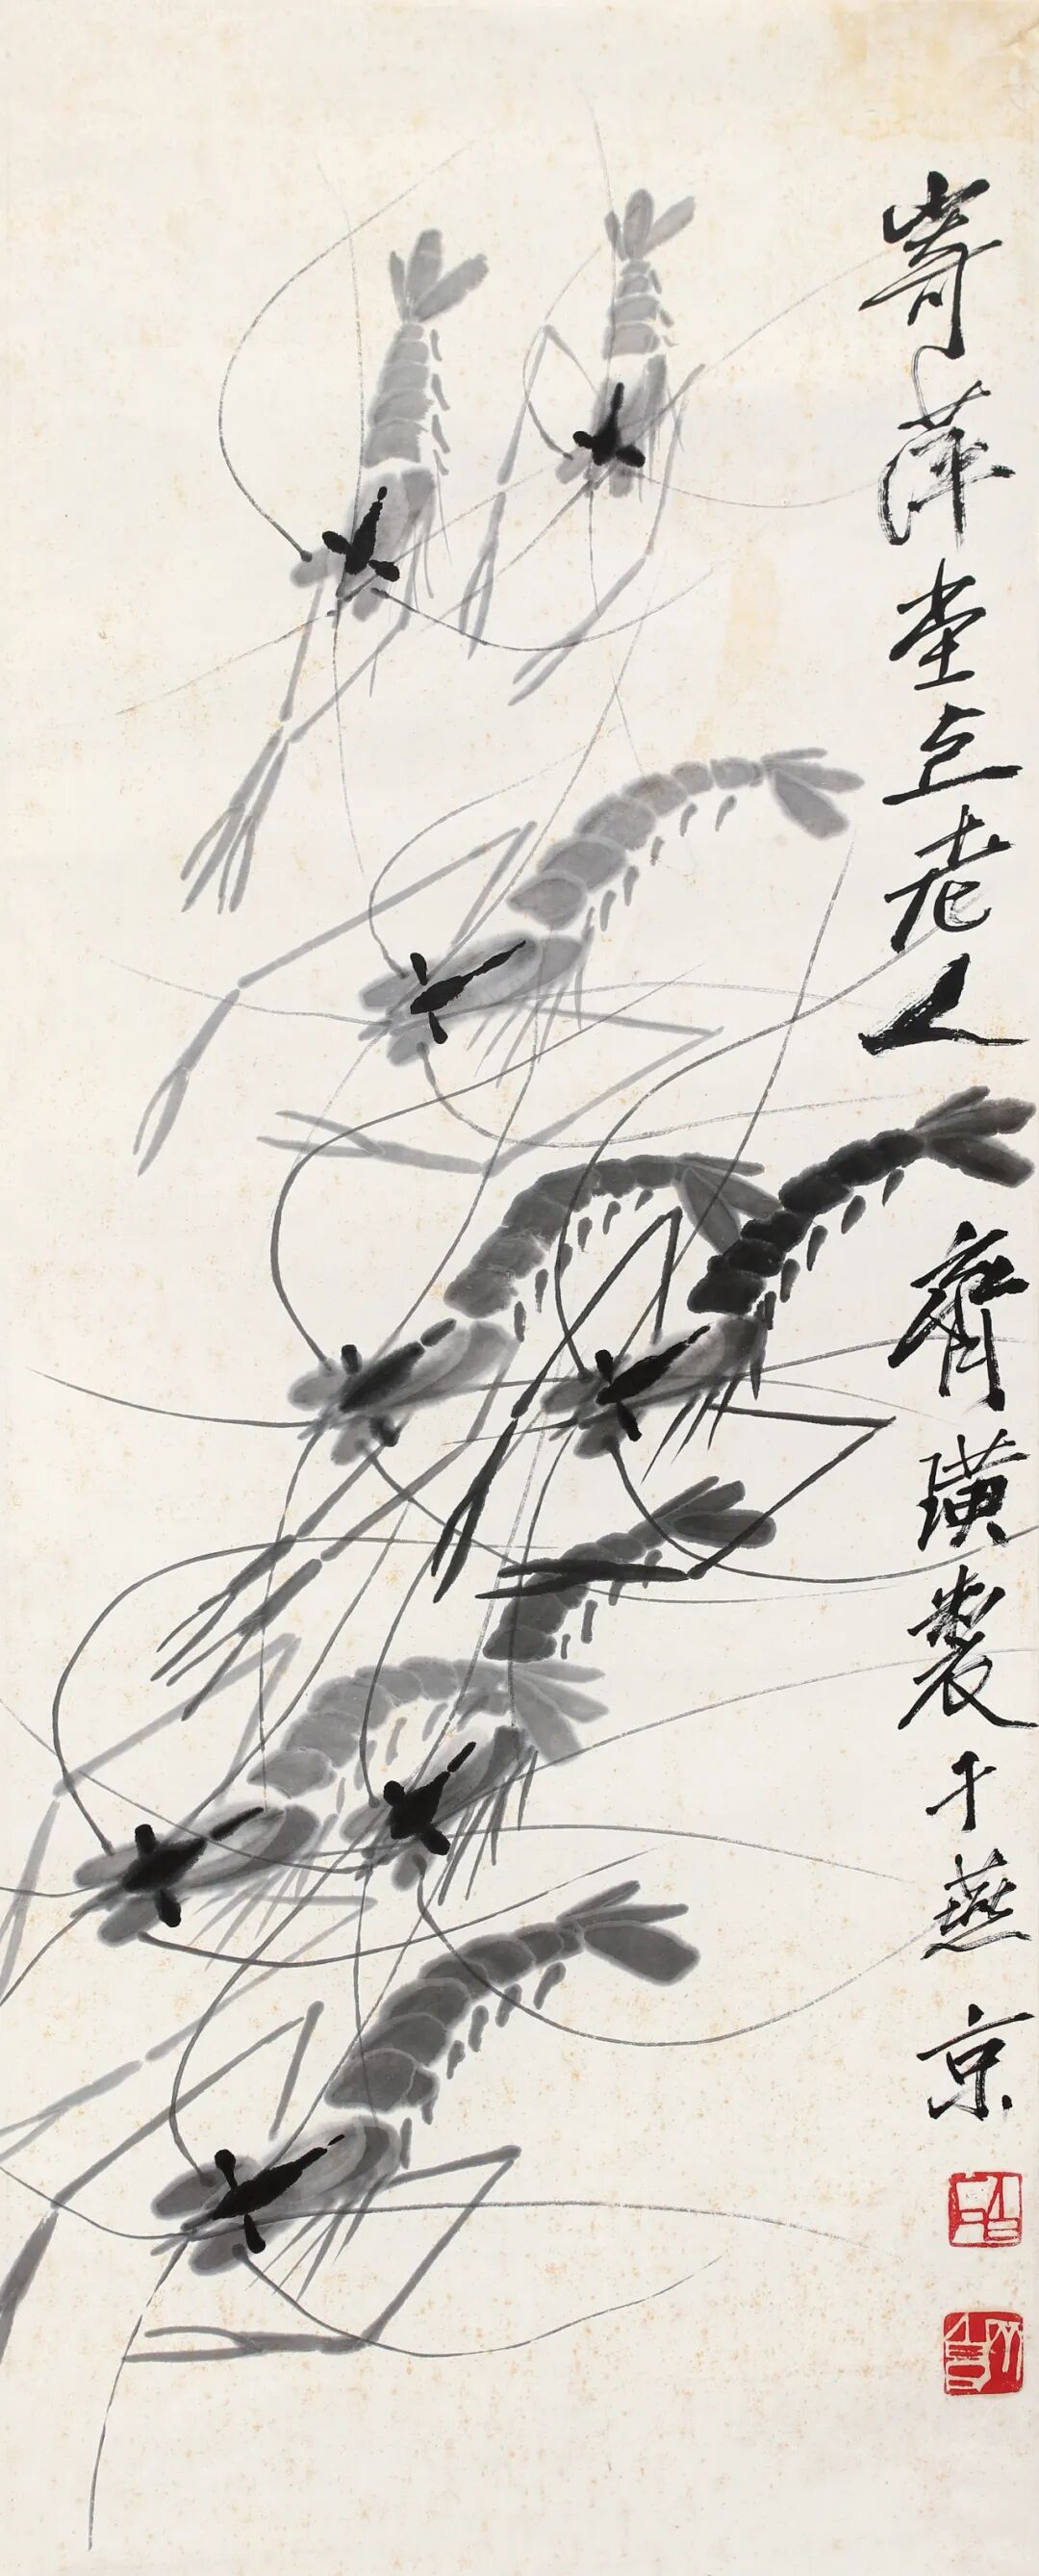 寄萍堂上老人齊璜製于燕京